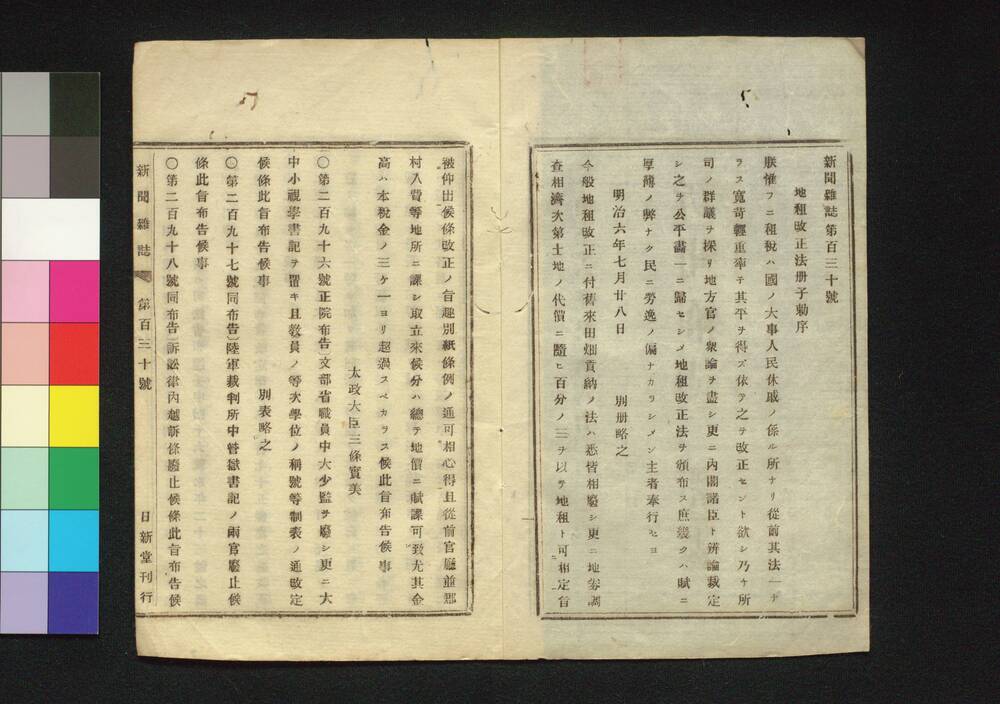 新聞雜誌第百三十號
地租改正法册子勅序
朕惟フニ租税ハ國ノ大事人民休戚ノ係ル所ナリ從前其法一ナ
ラス寬苛輕重率子其平ヲ得ズ依テ之ヲ改正セント欲シ乃チ所
司ノ群議ヲ採リ地方官ノ衆論ヲ盡シ更ニ内閣諸臣ト辨論裁定
シ之ヲ公平畫一ニ歸セシメ地租改正法ヲ頒布ス庶幾クハ賦ニ
厚薄ノ弊ナク民ニ勞逸ノ偏ナカラシメン主者奉行セヨ
明治六年七月廿八日　　別册略之
今般地租改正ニ付舊來田畑貢納ノ法ハ悉皆相廢シ更ニ地券調
査相濟次第土地ノ代價ニ隨ヒ百分ノ三ヲ以テ地租ト可相定旨
被仰出候條改正ノ旨趣別紙條例ノ通可相心得且從前官廳並郡
村入費等地所ニ課シ取立來候分ハ總テ地價ニ賦課可致尤其金
高ハ本税金ノ三ケ一ヨリ超過スベカラス候此旨布告候事
太政大臣三條實美
〇第二百九十六號正院布告〕文部省職員中大少監ヲ廢シ更ニ大
中小視學書記ヲ置キ且敎員ノ等次學位ノ稱號等制表ノ通改定
候條此旨布告候事　　別表略之
〇第二百九十七號同布告〕陸軍裁判所中管獄書記ノ兩官廢止候
條此旨布告候事
〇第二百九十八號同布告〕訴訟律内越訴條廢止候條此旨布告候
新聞雜誌　第百三十號　日新堂刊行